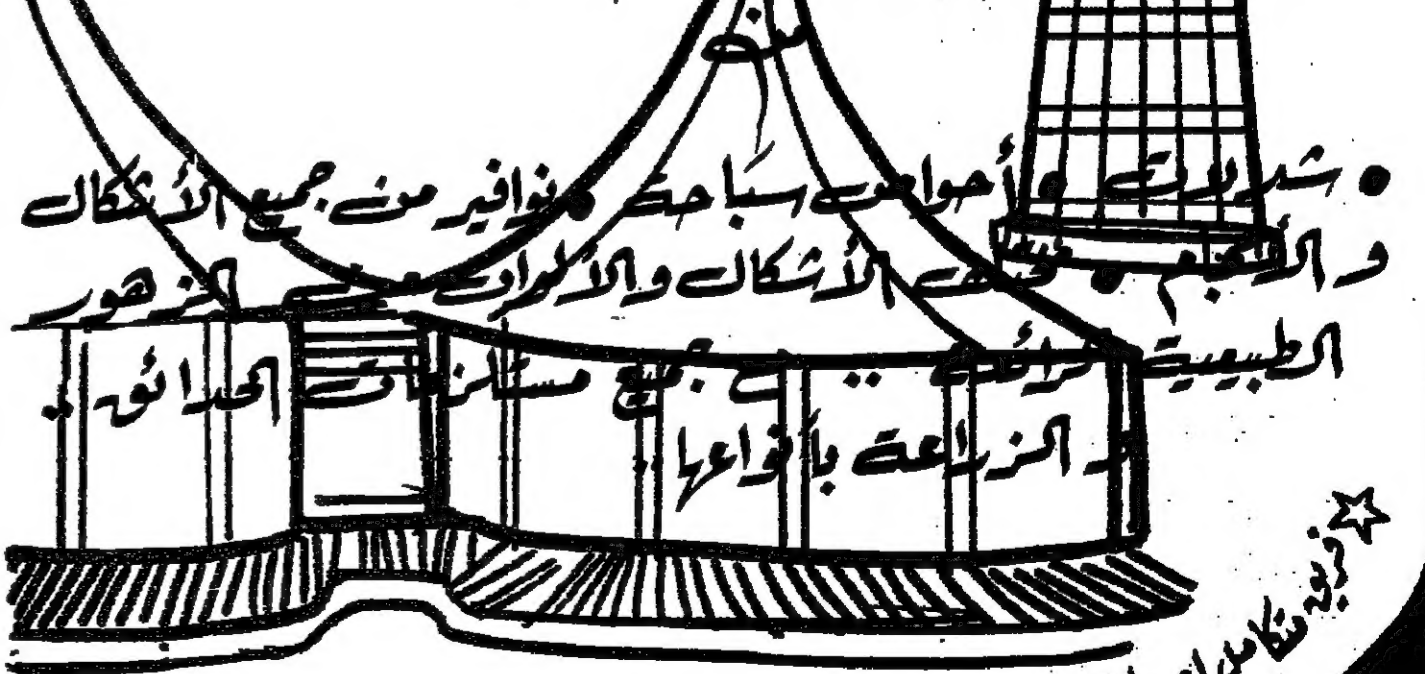 من
• شلالات • أحواض سباحة • نوافير من جميع الأشكال
و الأحجام • مختلف الأشكال والألوان من الزهور
الطبيعية .. مع جميع مستلزمات الحدائق ..
و الزراعة بأنواعها ..
☆ فريق متكامل